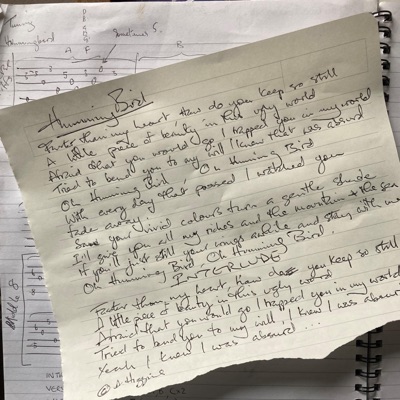 Humming
Hummingbird
Sometimes 5.
A F
B
Middle 8
Humming Bird
Faster than my heart How do you keep so still
A little piece of beauty in this ugly world
Afraid that you would go I trapped you in my world
Tried to bend you to my will I knew that was absurd
Oh Humming Bird Oh Humming Bird
With every day that passed I watched you
fade away
Saw your vivid colours turn a gentle shade
I'll give you all my riches and the mountain & the sea
If you'll just still your wings awhile and stay with me
Oh Humming Bird Oh Humming Bird.
INTERLUDE
Faster than my heart, how does you keep so still
A little piece of beauty in this ugly world
Afraid that you would go I trapped you in my world
Tried to bend you to my will I knew I was absurd
Yeah I knew I was absurd ...
© A Higgins
INT
VER